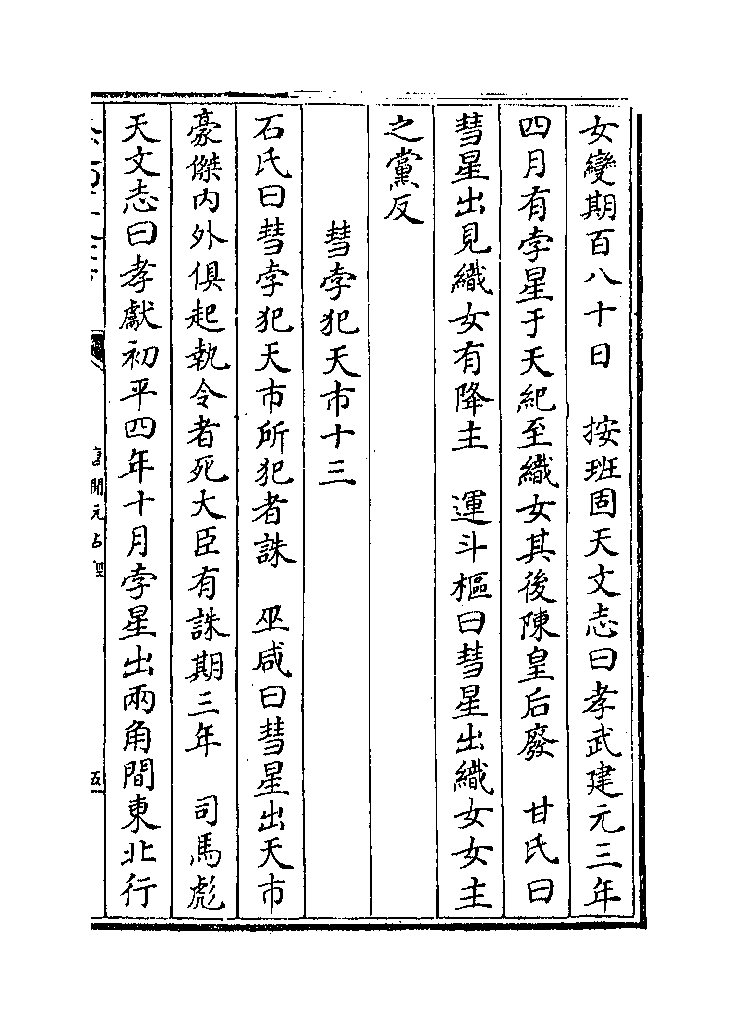 女變期百八十日　按班固天文志曰孝武建元三年
四月有孛星于天紀至織女其後陳皇后廢　甘氏曰
彗星出見織女有降主　運斗樞曰彗星出織女女主
之黨反
彗孛犯天市十三
石氏曰彗孛犯天市所犯者誅　巫咸曰彗星出天市
豪傑内外俱起執令者死大臣有誅期三年　司馬彪
天文志曰孝獻初平四年十月孛星出兩角間東北行
唐開元占經
五